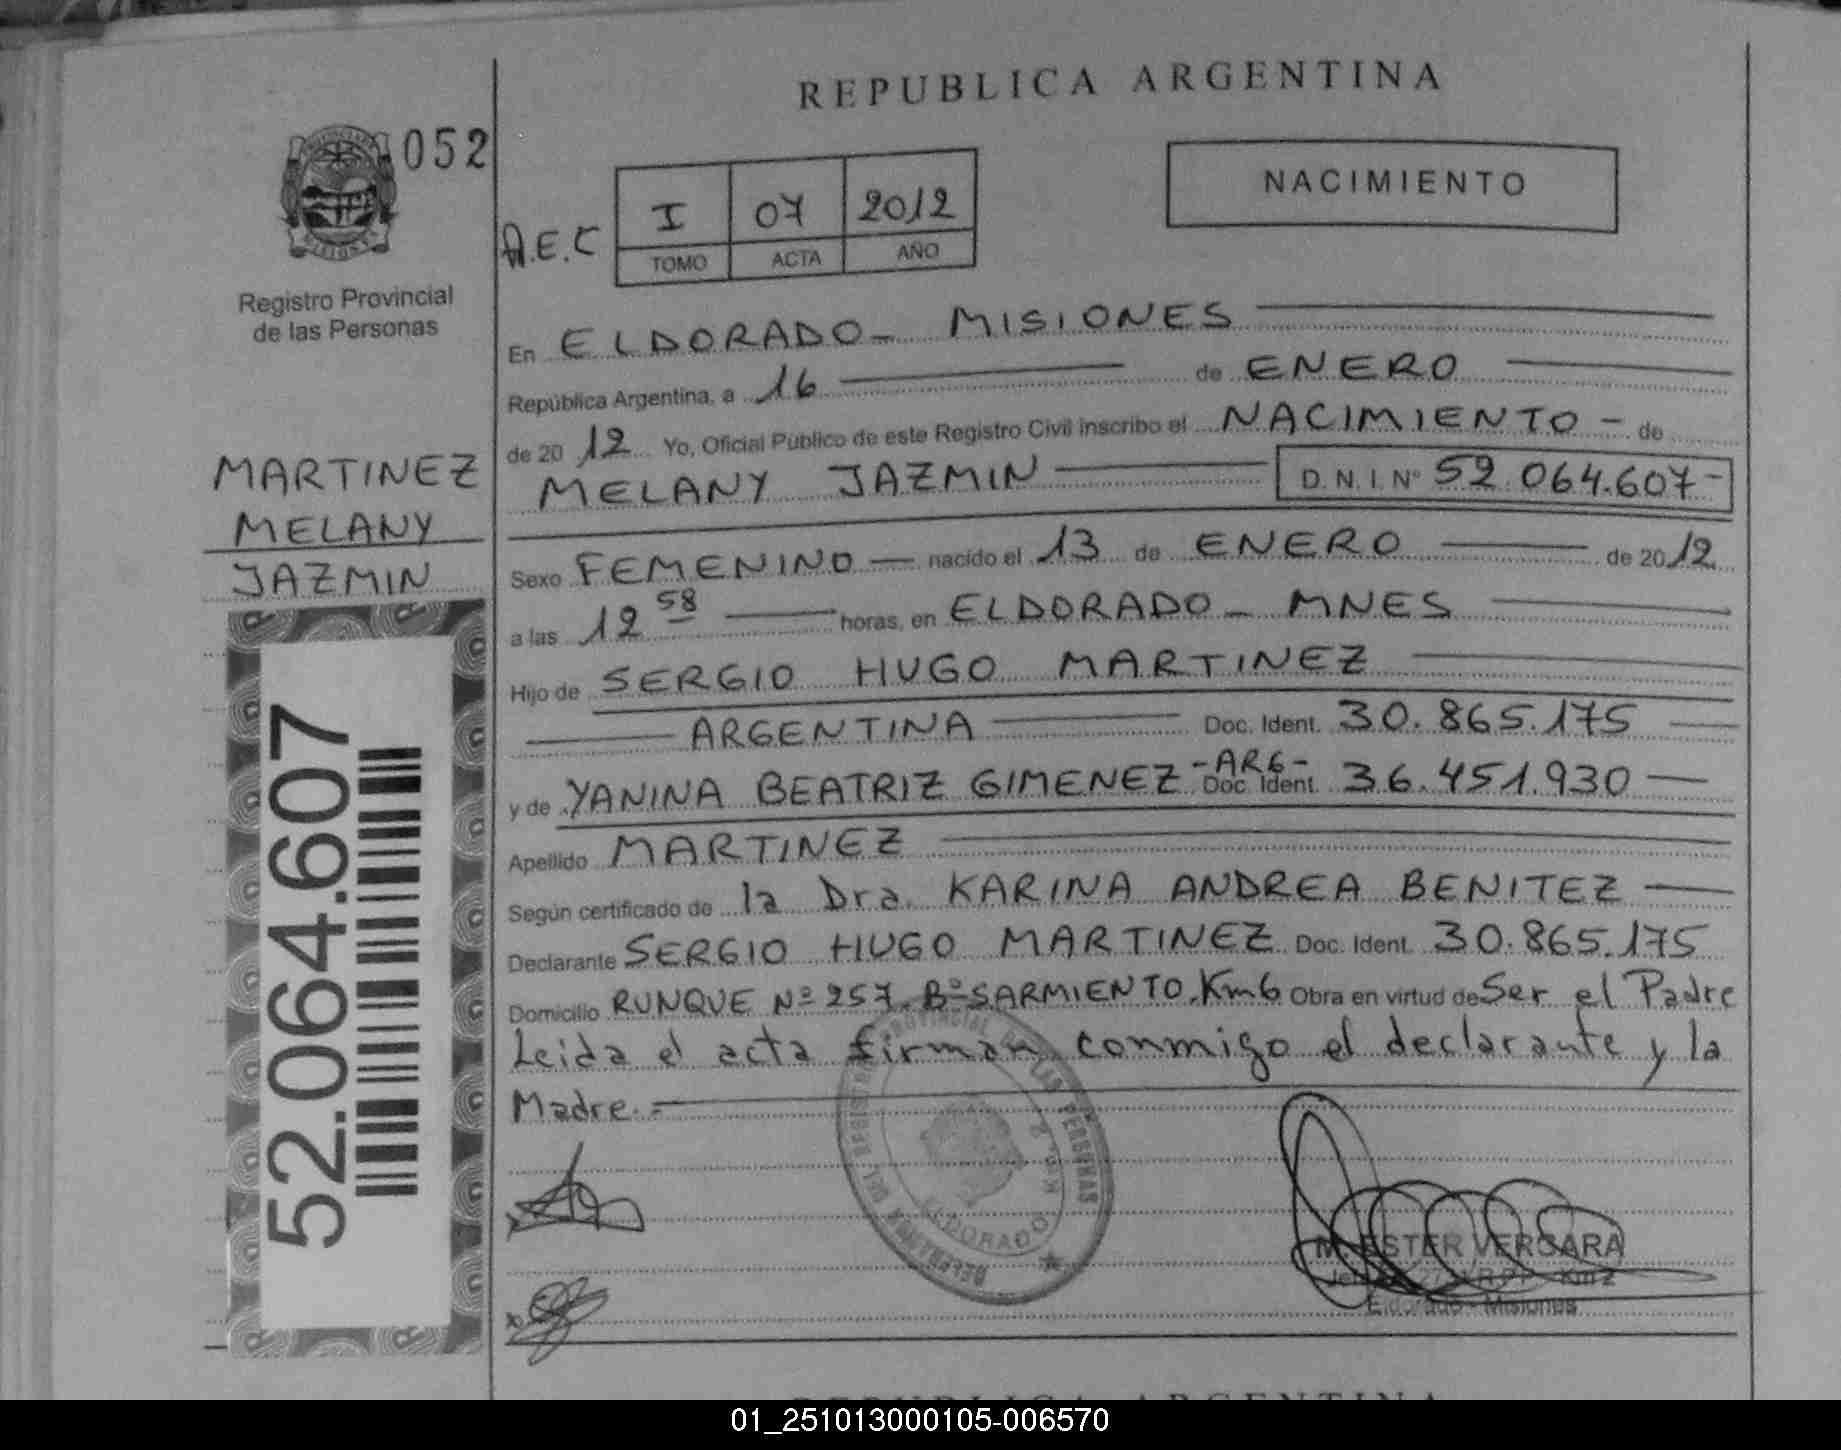 REPUBLICA ARGENTINA
052
NACIMIENTO
A.E.C
I 07 2012
TOMO ACTA AÑO
Registro Provincial
de las Personas
En ELDORADO - MISIONES
República Argentina, a 16 de ENERO
de 20 12 Yo, Oficial Público de este Registro Civil inscribo el NACIMIENTO - de
MELANY JAZMIN D.N.I. Nº 52.064.607-
MARTINEZ
MELANY
JAZMIN
Sexo FEMENINO - nacido el 13 de ENERO de 20 12
a las 12 58 horas, en ELDORADO - MNES
Hijo de SERGIO HUGO MARTINEZ
ARGENTINA Doc. Ident. 30.865.175
y de YANINA BEATRIZ GIMENEZ -ARG- Doc. Ident. 36.451.930
Apellido MARTINEZ
Según certificado de la Dra. KARINA ANDREA BENITEZ
Declarante SERGIO HUGO MARTINEZ Doc. Ident. 30.865.175
Domicilio RUNQUE Nº 257. Bº SARMIENTO. Km6 Obra en virtud de Ser el Padre
Leida el acta firman conmigo el declarante y la
Madre.-
52.064.607
DEL REGISTRO PROVINCIAL DE LAS PERSONAS
ELDORADO Km 2
M. ESTER VERGARA
R.P.P. Km 2
Eldorado - Misiones
REPUBLICA ARGENTINA
01_251013000105-006570